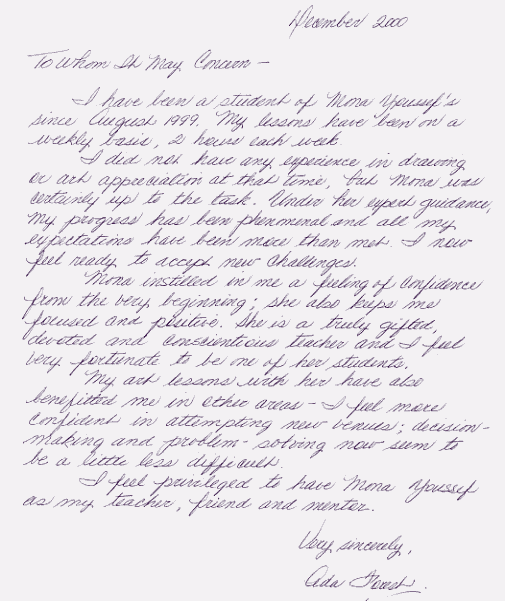 December 2000
To Whom It May Concern —
I have been a student of Mona Youssef's
since August 1999. My lessons have been on a
weekly basis, 2 hours each week.
I did not have any experience in drawing
or art appreciation at that time, but Mona was
certainly up to the task. Under her expert guidance,
my progress has been phenomenal and all my
expectations have been more than met. I now
feel ready to accept new challenges.
Mona instilled in me a feeling of confidence
from the very beginning; she also keeps me
focused and positive. She is a truly gifted,
devoted and conscientious teacher and I feel
very fortunate to be one of her students.
My art lessons with her have also
benefitted me in other areas – I feel more
confident in attempting new venues; decision-
making and problem-solving now seem to
be a little less difficult.
I feel privileged to have Mona Youssef
as my teacher, friend and mentor.
Very sincerely,
Ada